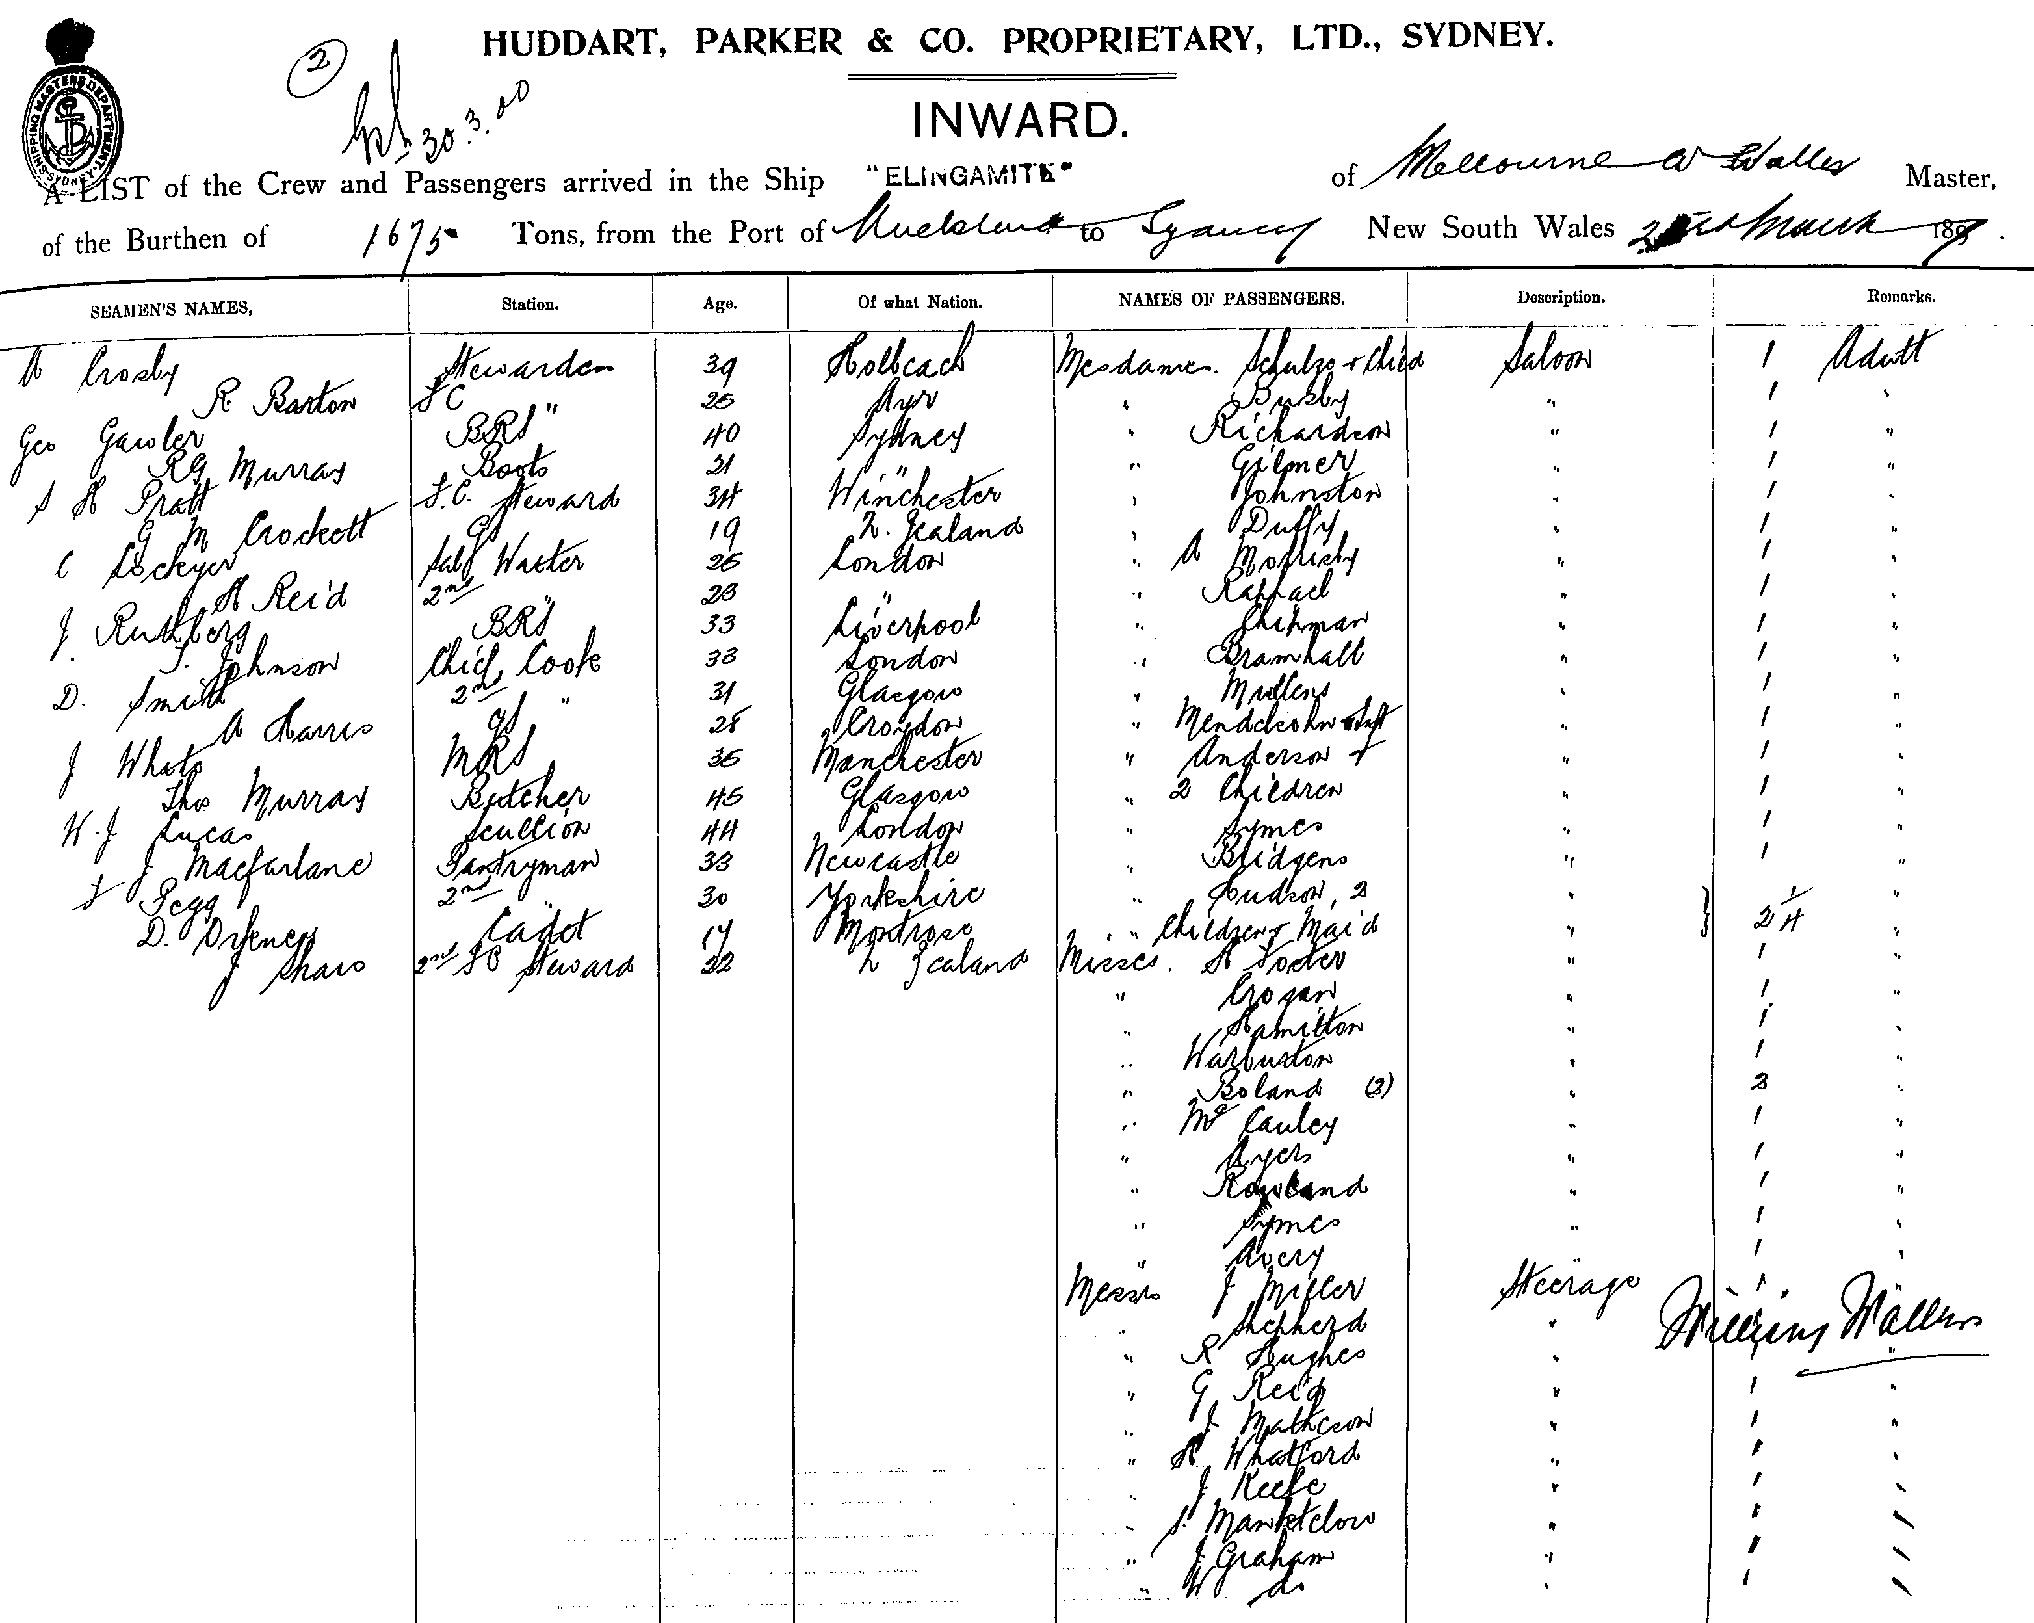 HUDDART, PARKER & CO. PROPRIETARY, LTD., SYDNEY.
2
30.3.00
INWARD.
SHIPPING MASTERS DEPARTMENT SYDNEY
A LIST of the Crew and Passengers arrived in the Ship "ELINGAMITE" of Melbourne W Waller Master,
of the Burthen of 1675 Tons, from the Port of Auckland to Sydney New South Wales March 189
SEAMEN'S NAMES, Station. Age. Of what Nation. NAMES OF PASSENGERS. Description. Remarks.
A Crosby Stewardess 39 Holbeach Mesdames. Schulze + Child Saloon 1 Adult
R. Barton F C " 25 Ayr " Busby " 1 "
Geo Gawler BRS 40 Sydney " Richardson " 1 "
RG Murray Boots 21 " " Gilmer " 1 "
S H Pratt F.C. Steward 34 Winchester " Johnston " 1 "
G M Crockett GS 19 N. Zealand " Duffy " 1 "
C Lockyer Waiter 25 London " A " 1 "
H Reid 2nd " 23 " " Raphael " 1 "
J BRS 33 Liverpool " Shipman " 1 "
Johnson Chief Cook 33 London " Bramhall " 1 "
D. Smith 2nd " 31 Glasgow " Mullens " 1 "
A Harris GS 28 Croydon " Mendelsohn " 1 "
J MRS 35 Manchester " Anderson + " 1 "
Thos Murray Butcher 45 Glasgow " 2 Children " 1 "
W. J Lucas Scullion 44 London " Symes " 1 "
J Macfarlane Pantryman 33 Newcastle " Bridgens " 1 "
F Pegg 2nd " 30 Yorkshire " Hudson, 2 " "
D. Cadet 17 Montrose " Children + Maid " } "
J Shaw 2nd FC Steward 22 N Zealand Misses. H Foster " 1 "
" Crogan " 1 "
" Hamilton " 1 "
" Warburton " 1 "
" Boland " "
" McCauley " 1 "
" Ayers " 1 "
" Rowland " 1 "
" Symes " 1 "
" Avery " 1 "
Messrs J Miller Steerage 1 "
" Shepherd " William Waller
" R Hughes " "
" G Reid " 1 "
" J Matheson " 1 "
" H Whatford " 1 "
" J Keefe " 1
" S. " 1
" J Graham " 1
" W do " 1